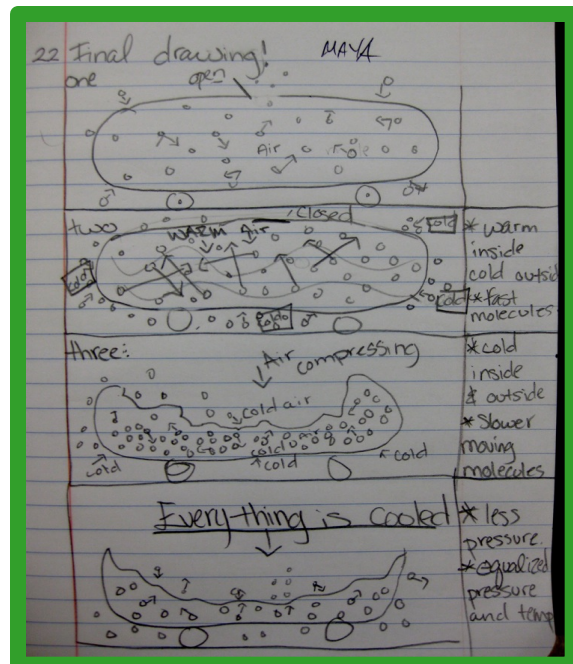 22 Final drawing! MAYA
one
open
Air
two
closed
WARM Air
cold
cold
cold
cold
* warm
inside
cold outside
* fast
molecules
three:
Air compressing
cold air
cold
cold
cold
cold
* cold
inside
& outside
* Slower
moving
molecules
Every-thing is cooled
* less
pressure.
* equalized
pressure
and temp